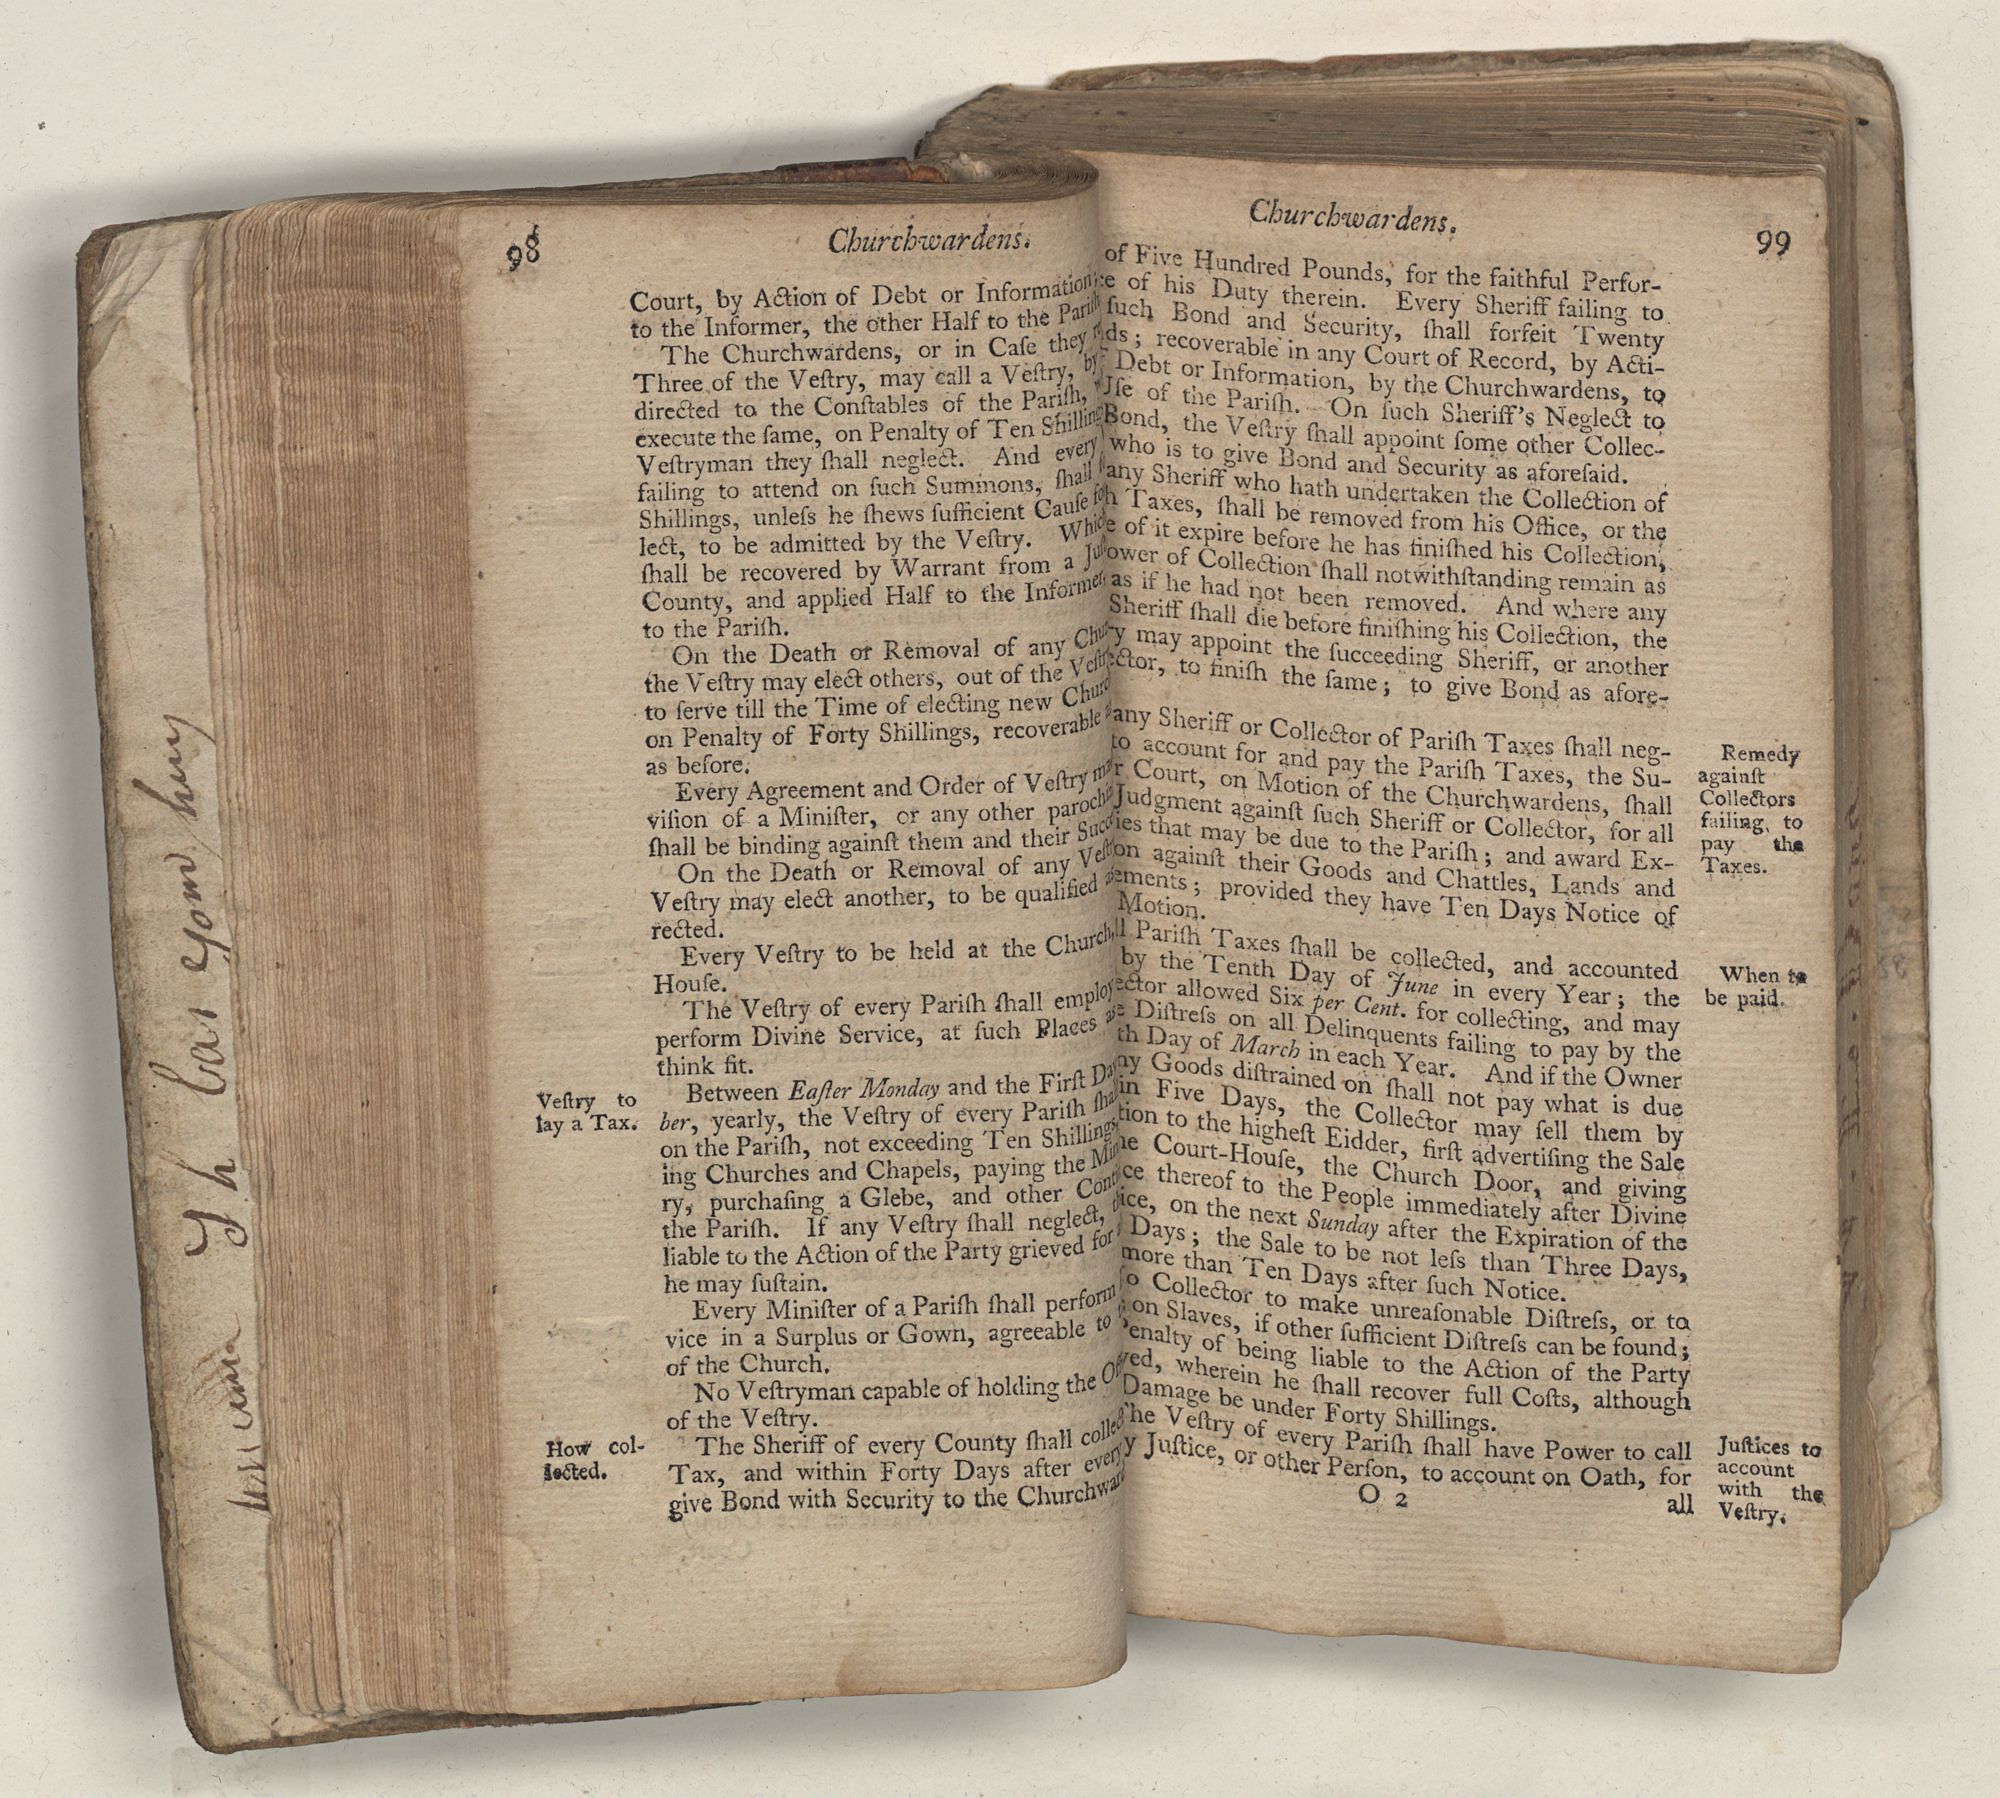 98
Churchwardens.
Court, by Action of Debt or Information
to the Informer, the other Half to the Pariſh
The Churchwardens, or in Caſe they
Three of the Veſtry, may call a Veſtry, by
directed to the Conſtables of the Pariſh,
execute the ſame, on Penalty of Ten Shilling
Veſtryman they ſhall neglect. And every
failing to attend on ſuch Summons, ſhall
Shillings, unleſs he ſhews ſufficient Cauſe fo
lect, to be admitted by the Veſtry. Which
ſhall be recovered by Warrant from a Juſt
County, and applied Half to the Informer,
to the Pariſh.
On the Death or Removal of any Chur
the Veſtry may elect others, out of the Veſt
to ſerve till the Time of electing new Churc
on Penalty of Forty Shillings, recoverable
as before.
Every Agreement and Order of Veſtry
viſion of a Miniſter, or any other parochi
ſhall be binding againſt them and their Succ
On the Death or Removal of any Veſt
Veſtry may elect another, to be qualified
rected.
Every Veſtry to be held at the Church,
Houſe.
The Veſtry of every Pariſh ſhall employ
perform Divine Service, at ſuch Places
think fit.
Veſtry to
lay a Tax.
Between Eaſter Monday and the Firſt Da
ber, yearly, the Veſtry of every Pariſh ſhall
on the Pariſh, not exceeding Ten Shillings,
ing Churches and Chapels, paying the Min
ry, purchaſing a Glebe, and other Cont
the Pariſh. If any Veſtry ſhall neglect,
liable to the Action of the Party grieved for
he may ſuſtain.
Every Miniſter of a Pariſh ſhall perform
vice in a Surplus or Gown, agreeable to
of the Church.
No Veſtryman capable of holding the Of
of the Veſtry.
How col-
lected.
The Sheriff of every County ſhall collec
Tax, and within Forty Days after every
give Bond with Security to the Churchward
Churchwardens.
99
of Five Hundred Pounds, for the faithful Perfor-
ce of his Duty therein. Every Sheriff failing to
ſuch Bond and Security, ſhall forfeit Twenty
ds; recoverable in any Court of Record, by Acti-
Debt or Information, by the Churchwardens, to
Uſe of the Pariſh. On ſuch Sheriff's Neglect to
Bond, the Veſtry ſhall appoint ſome other Collec-
who is to give Bond and Security as aforeſaid.
any Sheriff who hath undertaken the Collection of
h Taxes, ſhall be removed from his Office, or the
e of it expire before he has finiſhed his Collection,
ower of Collection ſhall notwithſtanding remain as
as if he had not been removed. And where any
Sheriff ſhall die before finiſhing his Collection, the
y may appoint the ſucceeding Sheriff, or another
ector, to finiſh the ſame; to give Bond as afore-
any Sheriff or Collector of Pariſh Taxes ſhall neg-
to account for and pay the Pariſh Taxes, the Su-
r Court, on Motion of the Churchwardens, ſhall
Judgment againſt ſuch Sheriff or Collector, for all
ies that may be due to the Pariſh; and award Ex-
on againſt their Goods and Chattles, Lands and
ements; provided they have Ten Days Notice of
Motion.
Remedy
againſt
Collectors
failing to
pay the
Taxes.
ll Pariſh Taxes ſhall be collected, and accounted
by the Tenth Day of June in every Year; the
ector allowed Six per Cent. for collecting, and may
e Diſtreſs on all Delinquents failing to pay by the
th Day of March in each Year. And if the Owner
ny Goods diſtrained on ſhall not pay what is due
in Five Days, the Collector may ſell them by
tion to the higheſt Eidder, firſt advertiſing the Sale
he Court-Houſe, the Church Door, and giving
ce thereof to the People immediately after Divine
ice, on the next Sunday after the Expiration of the
Days; the Sale to be not leſs than Three Days,
more than Ten Days after ſuch Notice.
When to
be paid.
o Collector to make unreaſonable Diſtreſs, or to
on Slaves, if other ſufficient Diſtreſs can be found;
Penalty of being liable to the Action of the Party
ved, wherein he ſhall recover full Coſts, although
Damage be under Forty Shillings.
The Veſtry of every Pariſh ſhall have Power to call
y Juſtice, or other Perſon, to account on Oath, for
Juſtices to
account
with the
Veſtry.
O 2
all